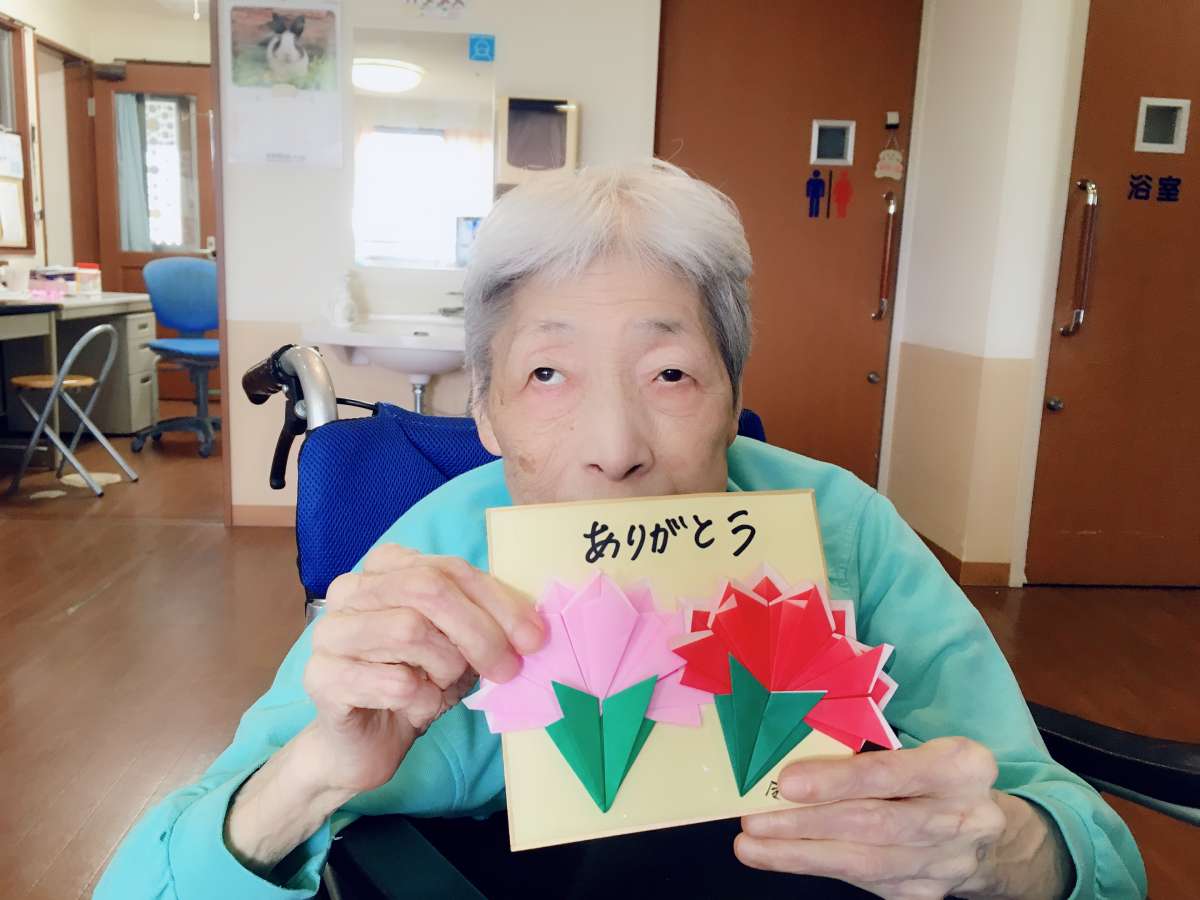 ありがとう
浴室